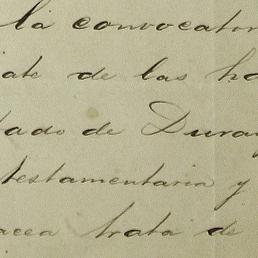 la convocator
iate de las ha
tado de Duran
testamentaria y
acea trata de